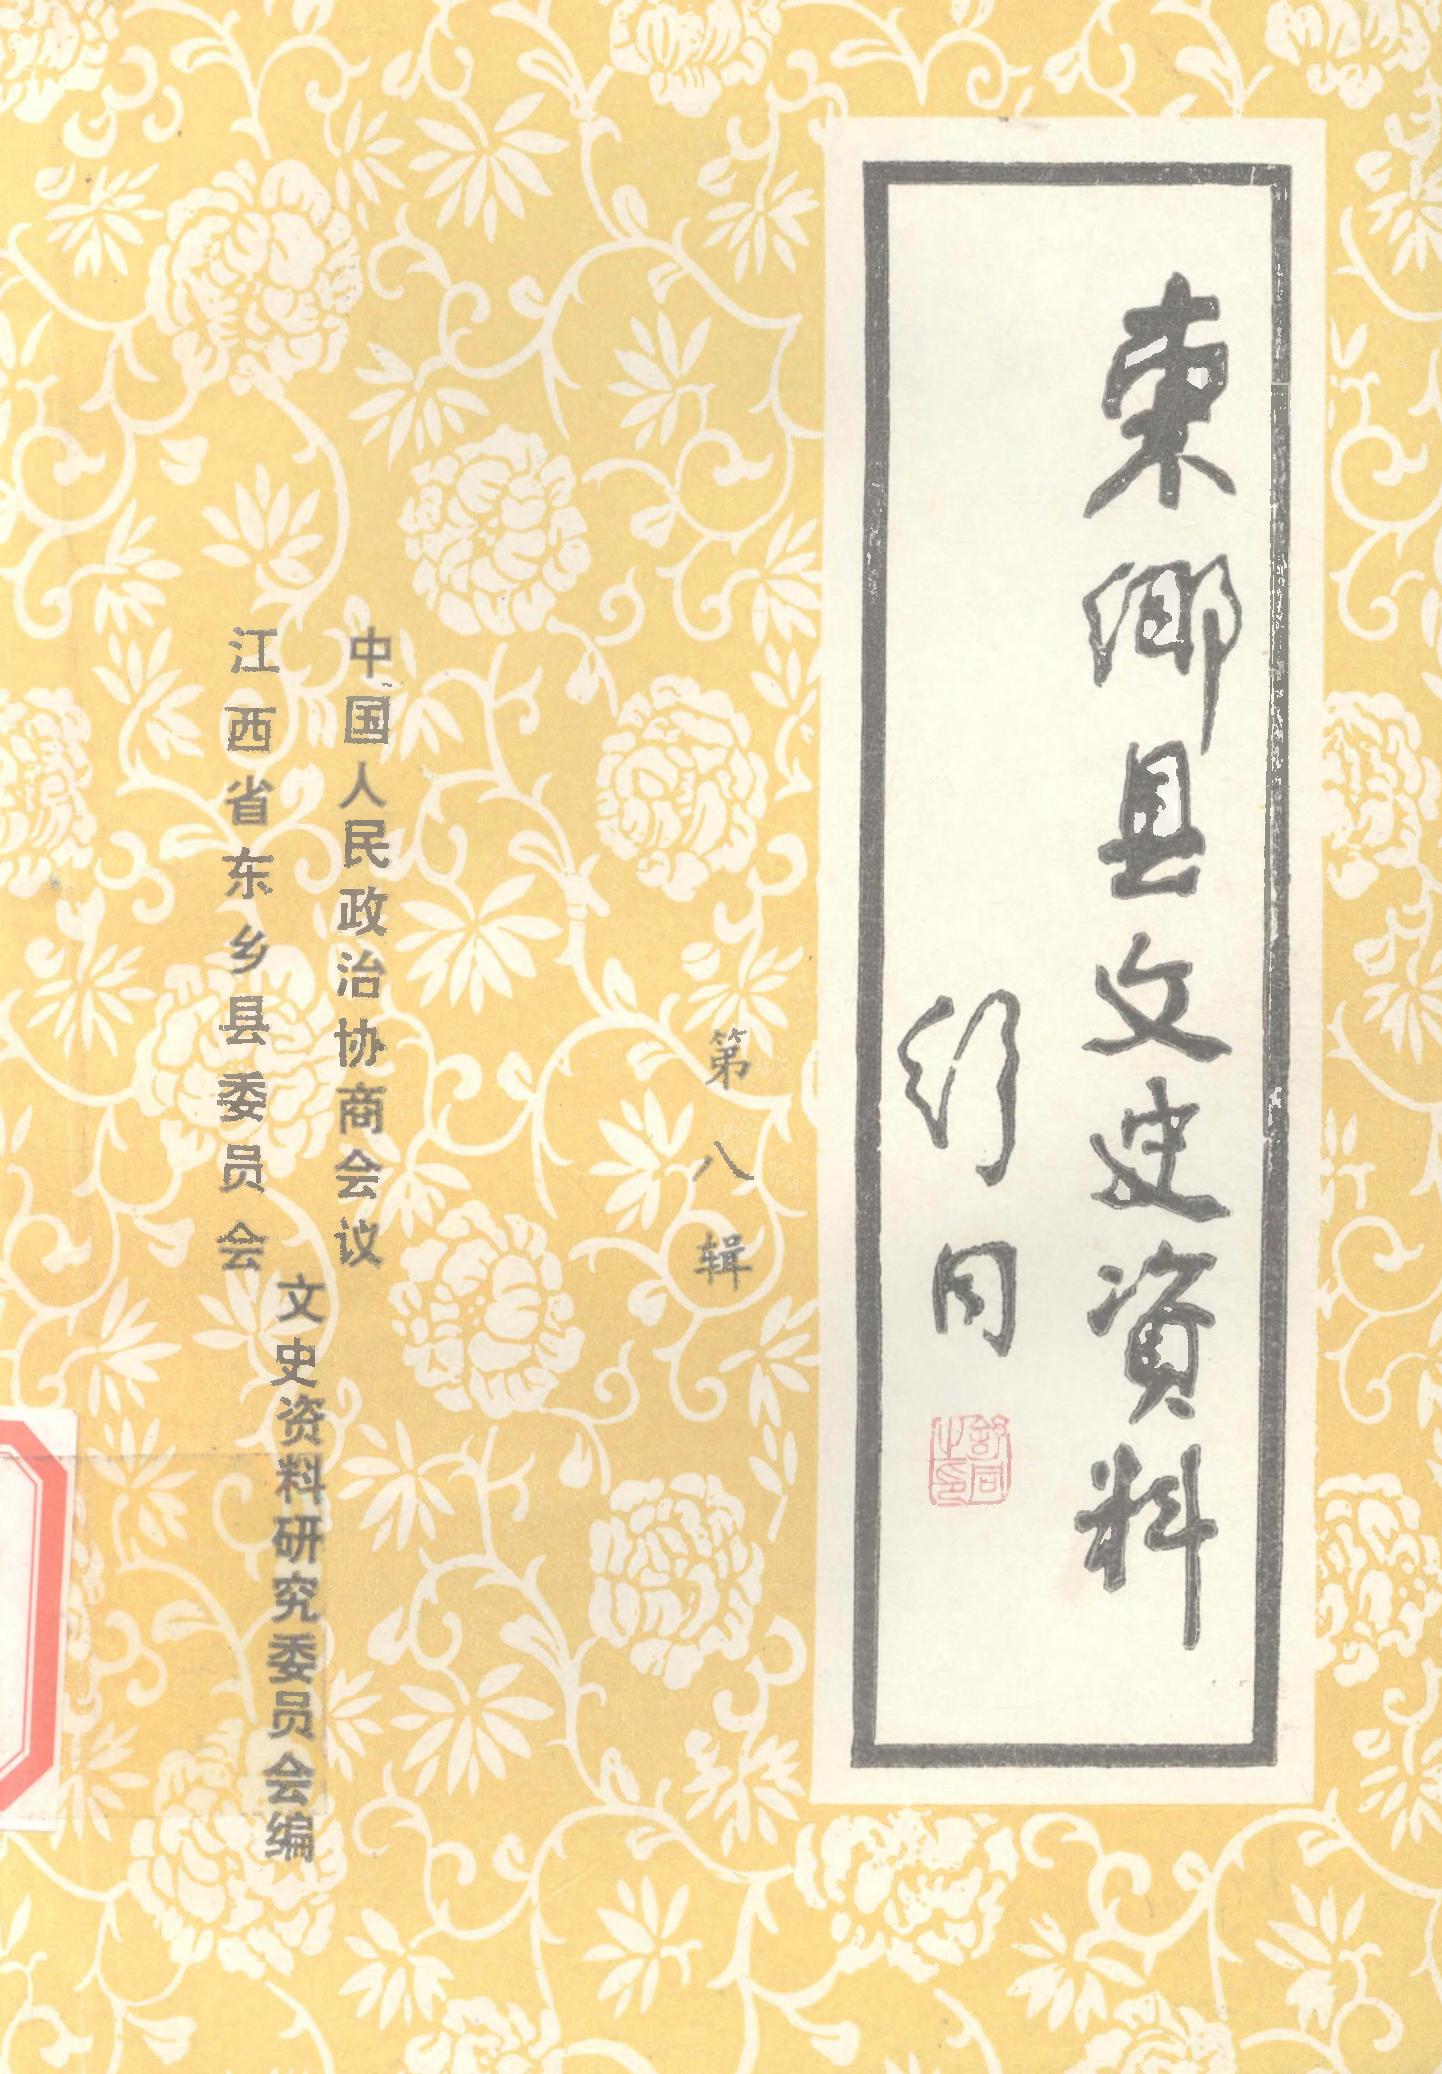 東鄉县文史資料
舒同
舒同之印
第八辑
中国人民政治协商会议
江西省东乡县委员会
文史资料研究委员会编